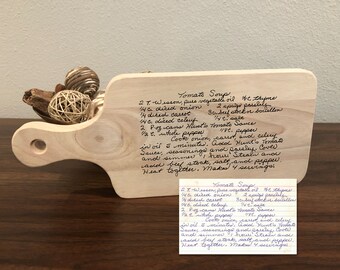 Tomato Soup
2 T. Wesson, pure vegetable oil ¼ t. thyme
¼ c. diced onion 2 sprigs parsley
¼ c. diced carrot 3 c. beef stock or bouillon
¼ c. diced celery ½ t. salt
2 8 oz cans Hunt's Tomato Sauce
¼ t. whole pepper ⅛ t. pepper
Cook onion, carrot and celery
in oil 5 minutes. Add Hunt's Tomato
Sauce, seasonings and parsley. Cover
and simmer
and beef stock, salt and pepper.
Heat together. Makes 4 servings.
Tomato Soup
2 T. Wesson, pure vegetable oil ¼ t. thyme
¼ c. diced onion 2 sprigs parsley
¼ c. diced carrot 3 c. beef stock or bouillon
¼ c. diced celery ½ t. salt
2 8 oz cans Hunt's Tomato Sauce
¼ t. whole pepper ⅛ t. pepper
Cook onion, carrot and celery
in oil 5 minutes. Add Hunt's Tomato
Sauce, seasonings and parsley. Cover
and simmer
and beef stock, salt and pepper.
Heat together. Makes 4 servings.